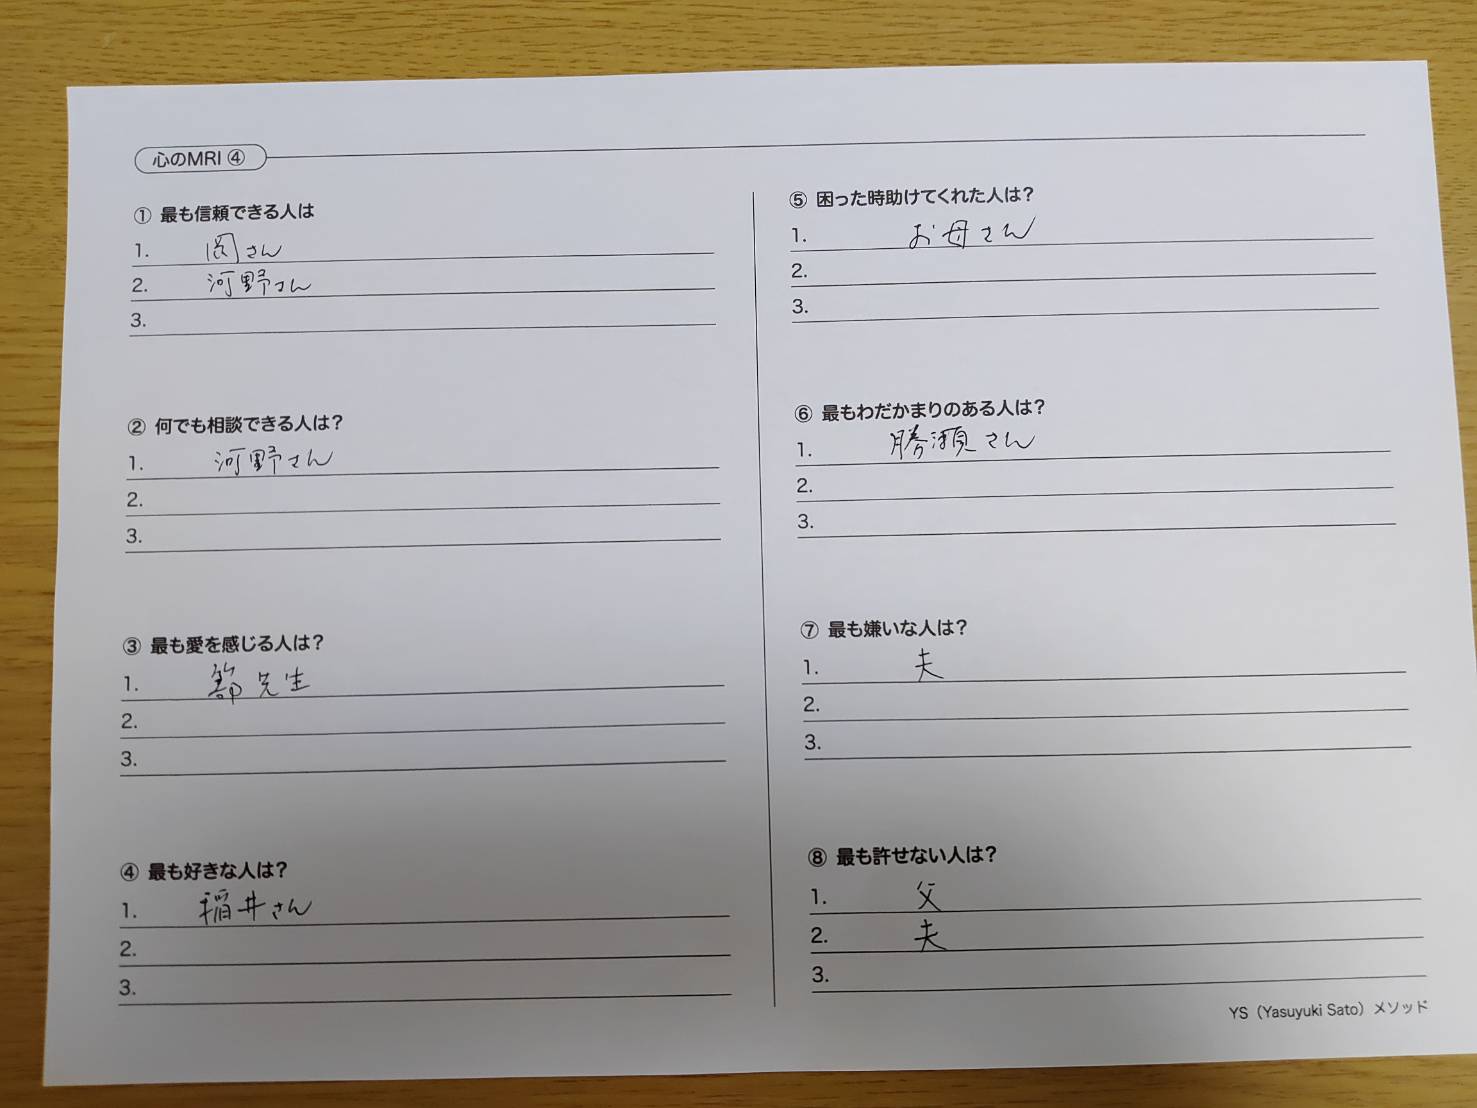 心のMRI ④
① 最も信頼できる人は
1. 岡さん
2. 河野さん
3.
② 何でも相談できる人は?
1. 河野さん
2.
3.
③ 最も愛を感じる人は?
1. 先生
2.
3.
④ 最も好きな人は?
1. 稲井さん
2.
3.
⑤ 困った時助けてくれた人は?
1. お母さん
2.
3.
⑥ 最もわだかまりのある人は?
1. 勝瀬さん
2.
3.
⑦ 最も嫌いな人は?
1. 夫
2.
3.
⑧ 最も許せない人は?
1. 父
2. 夫
3.
YS（Yasuyuki Sato）メソッド